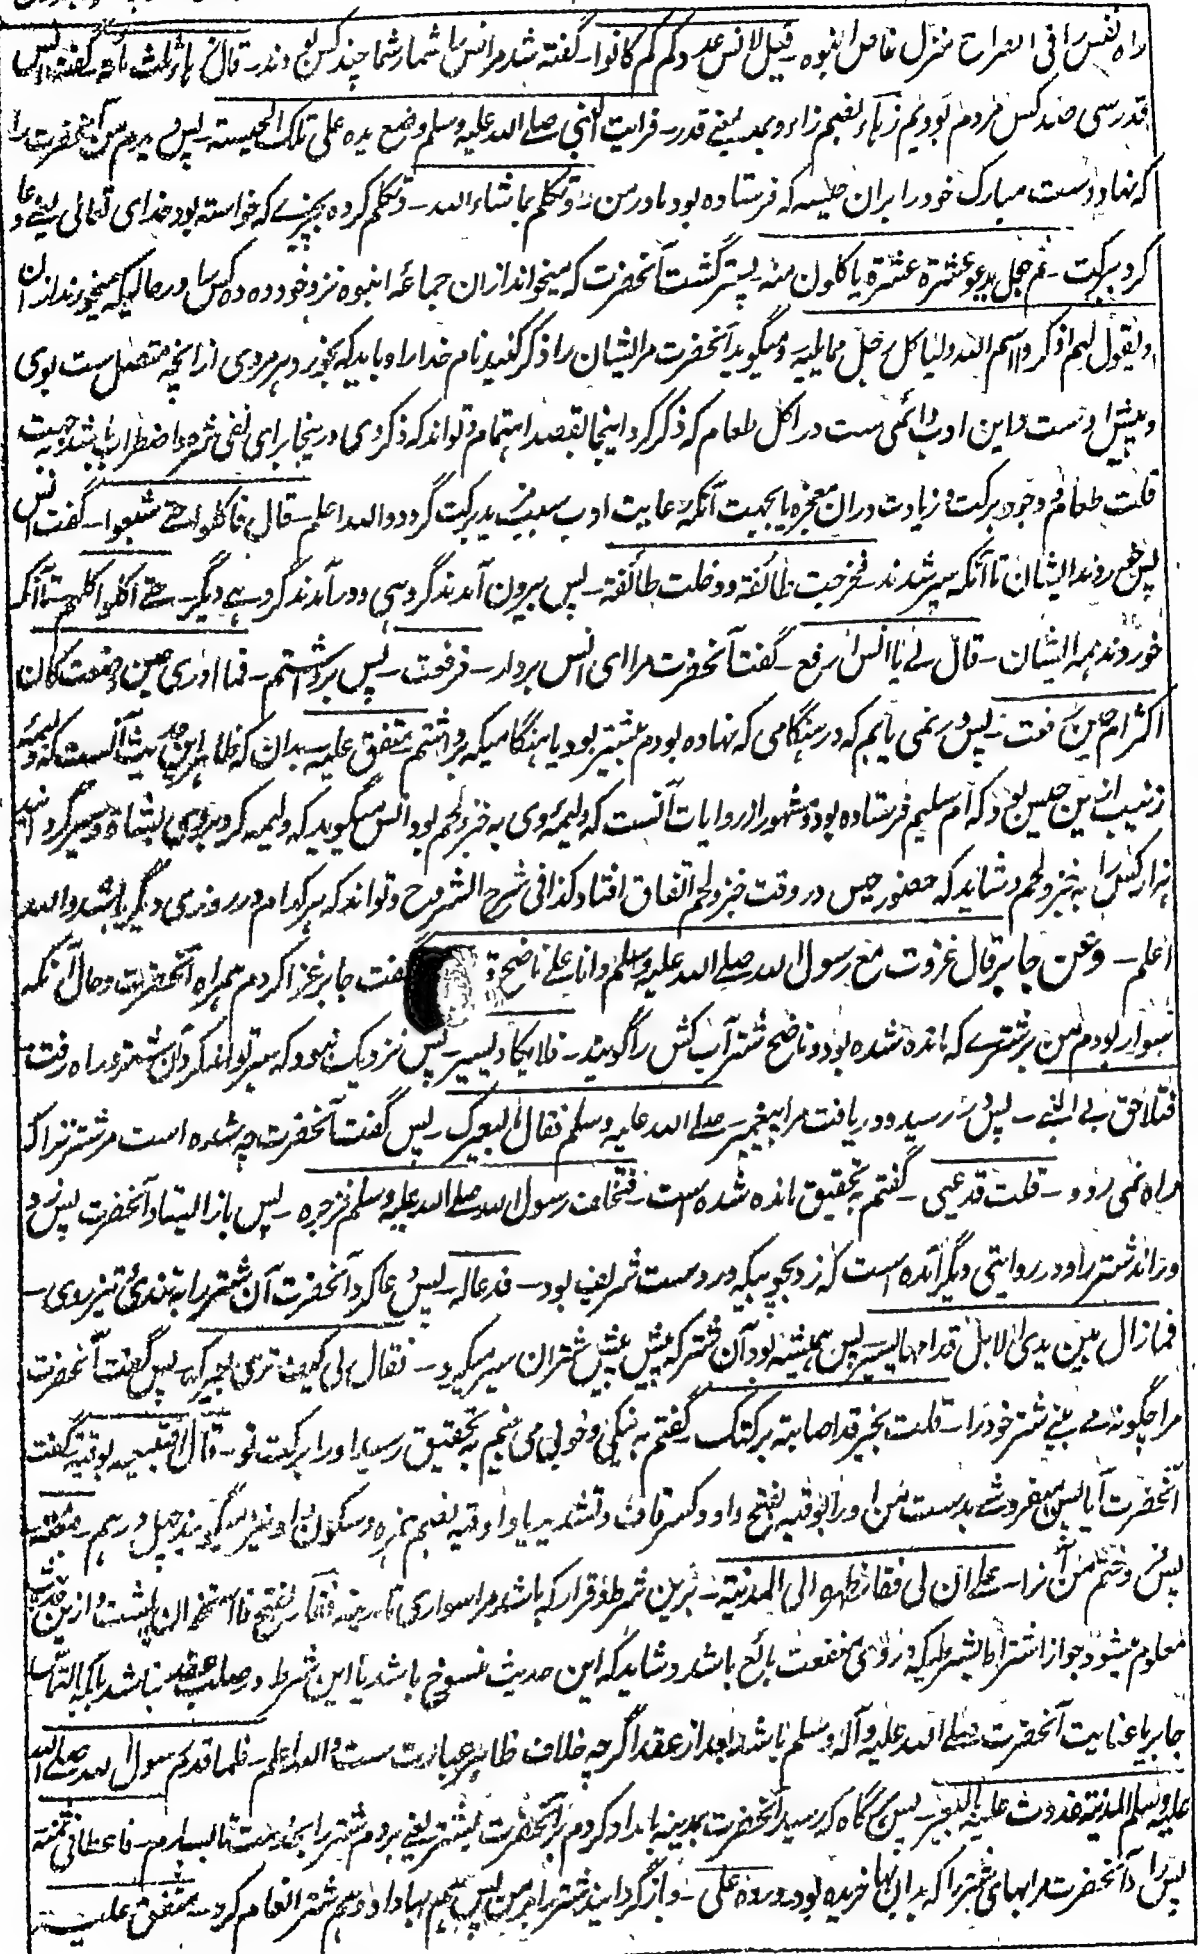 راه نفس را فی الصراح منزل غاص انبوه ـ قیل لانس عددکم کم کانوا ـ گفته شد مر انس را شمار شما چند کس بودند ـ قال زهاء ثلث مائة ـ گفت انس
قدر سی صد کس مردم بودیم زهاء بضم زاء و بمد بمعنی قدر ـ فرایت النبی صلے الله علیه وسلم وضع یده علی تلک الحیسة ـ پس دیدم من آنحضرت را
که نهاد دست مبارک خود را بران حیسه که فرستاده بود مادر من ـ و تکلم بما شاء الله ـ و تکلم کرده بچیزے که خواسته بود خدای تعالی یعنے دعا
کرد ببرکت ـ ثم جعل یدعو عشرة عشرة یاکلون منه ـ پستر گشت آنحضرت که میخواند ازان جماعه انبوه نزد خود ده ده کس را در حالیکه میخورند ازان
و یقول لهم اذکروا اسم الله ولیاکل کل رجل مما یلیه ـ و میگوید آنحضرت مر ایشان را ذکر کنید نام خدا را و باید که بخورد هر مردی از آنچه متصل ست بوی
و پیش اوست و این ادب دائمی ست در اکل طعام که ذکر کرد اینجا بقصد اهتمام و تواند که ذکر وی درینجا برای نفی شره و اضطراب باشد بجهت
قلت طعام و وجود برکت و زیادت دران معجزه یا بجهت آنکه رعایت ادب سبب مزید برکت گردد والله اعلم ـ قال فاکلوا حتے شبعوا ـ گفت انس
پس خوردند ایشان تا آنکه سیر شدند ـ فخرجت طائفة و دخلت طائفة ـ پس بیرون آمدند گروهی و در آمدند گروهے دیگر ـ حتے اکلوا کلهم ـ تا آنکه
خوردند همه ایشان ـ قال لی یا انس ارفع ـ گفت آنحضرت مرا ای انس بردار ـ فرفعت ـ پس برداشتم ـ فما ادری حین وضعت کان
اکثر ام حین رفعت ـ پس در نمی یابم که در هنگامی که نهاده بودم بیشتر بود یا هنگامیکه برداشتم متفق علیه ـ بدان که ظاهر این حدیث آنست که ولیمه
زینب از این حیس بود که ام سلیم فرستاده بود و مشهور از روایات آنست که ولیمه وی به خبز و لحم بود انس میگوید که ولیمه کرد بر وی بشاة و سیر گردانید
هزار کس را به خبز و لحم و شاید که حضور حیس در وقت خبز و لحم اتفاق افتاد کذا فی شرح الشروح و تواند که هر کدام در روزی دیگر باشد والله
اعلم ـ وعن جابر قال غزوت مع رسول الله صلے الله علیه وسلم وانا علے ناضح گفت جابر غزا کردم همراه آنحضرت و حال آنکه
سوار بودم من بر شترے که مانده شده بود و ناضح شتر آب کش را گویند ـ فلا یکاد یسیر ـ پس نزدیک نبود که سیر تواند کرد آن شتر و راه رفت
فتلاحق بی النبے ـ پس در رسید و دریافت مرا پیغمبر ـ صلے الله علیه وسلم فقال ما لبعیرک ـ پس گفت آنحضرت چه شده است مر شتر ترا که
راه نمی رود ـ قلت قد عیی ـ گفتم به تحقیق مانده شده است ـ فتخلف رسول الله صلے الله علیه وسلم فزجره ـ پس باز ایستاد آنحضرت پس زد
و براند شتر را و در روایتی دیگر آمده است که زد بچوبیکه در دست شریف بود ـ فدعا له ـ پس دعا کرد آنحضرت آن شتر را به تندی و تیز روی ـ
فما زال بین یدی الابل قدامها یسیر ـ پس همیشه بود آن شتر که پیش پیش شتران سیر میکرد ـ فقال لی کیف تری بعیرک ـ پس گفت آنحضرت
مرا چگونه مے بینے شتر خود را ـ قلت بخیر قد اصابته برکتک ـ گفتم به نیکی و خوبی می بینم به تحقیق رسید او را برکت تو ـ قال افتبیعه بوقیة گفت
آنحضرت آیا پس میفروشے بدست من او را بوقیه بفتح واو و کسر قاف و تشدید یا و اوقیه بضم همزه و سکون واو نیز میگویند چهل درهم ـ فبعته
پس فروختم من آن را ـ علے ان لی فقار ظهره الی المدینة ـ برین شرط و قرار که باشد مرا سواری تا مدینه فقار بفتح فا استخوان پشت و ازین حدیث
معلوم میشود جواز اشتراط بشرطیکه در وی منفعت بائع باشد و شاید که این حدیث منسوخ باشد یا این شرط در صلب عقد نباشد بلکه التماس
جابر یا عنایت آنحضرت صلے الله علیه وآله وسلم باشد بعد از عقد اگر چه خلاف ظاهر عبارت ست والله اعلم ـ فلما قدم رسول الله صلے الله
علیه وسلم المدینة غدوت علیه بالبعیر ـ پس هرگاه که رسید آنحضرت بمدینه بامداد کردم بر آنحضرت بشتر یعنے بردم شتر را بخدمت تا بسپارم ـ فاعطانی ثمنه
پس داد آنحضرت مرا بهای شتر را که بدان بها خریده بود و رده علی ـ و باز گردانید شتر را بر من پس هم بها داد و هم شتر انعام کرد ـ متفق علیه ـ